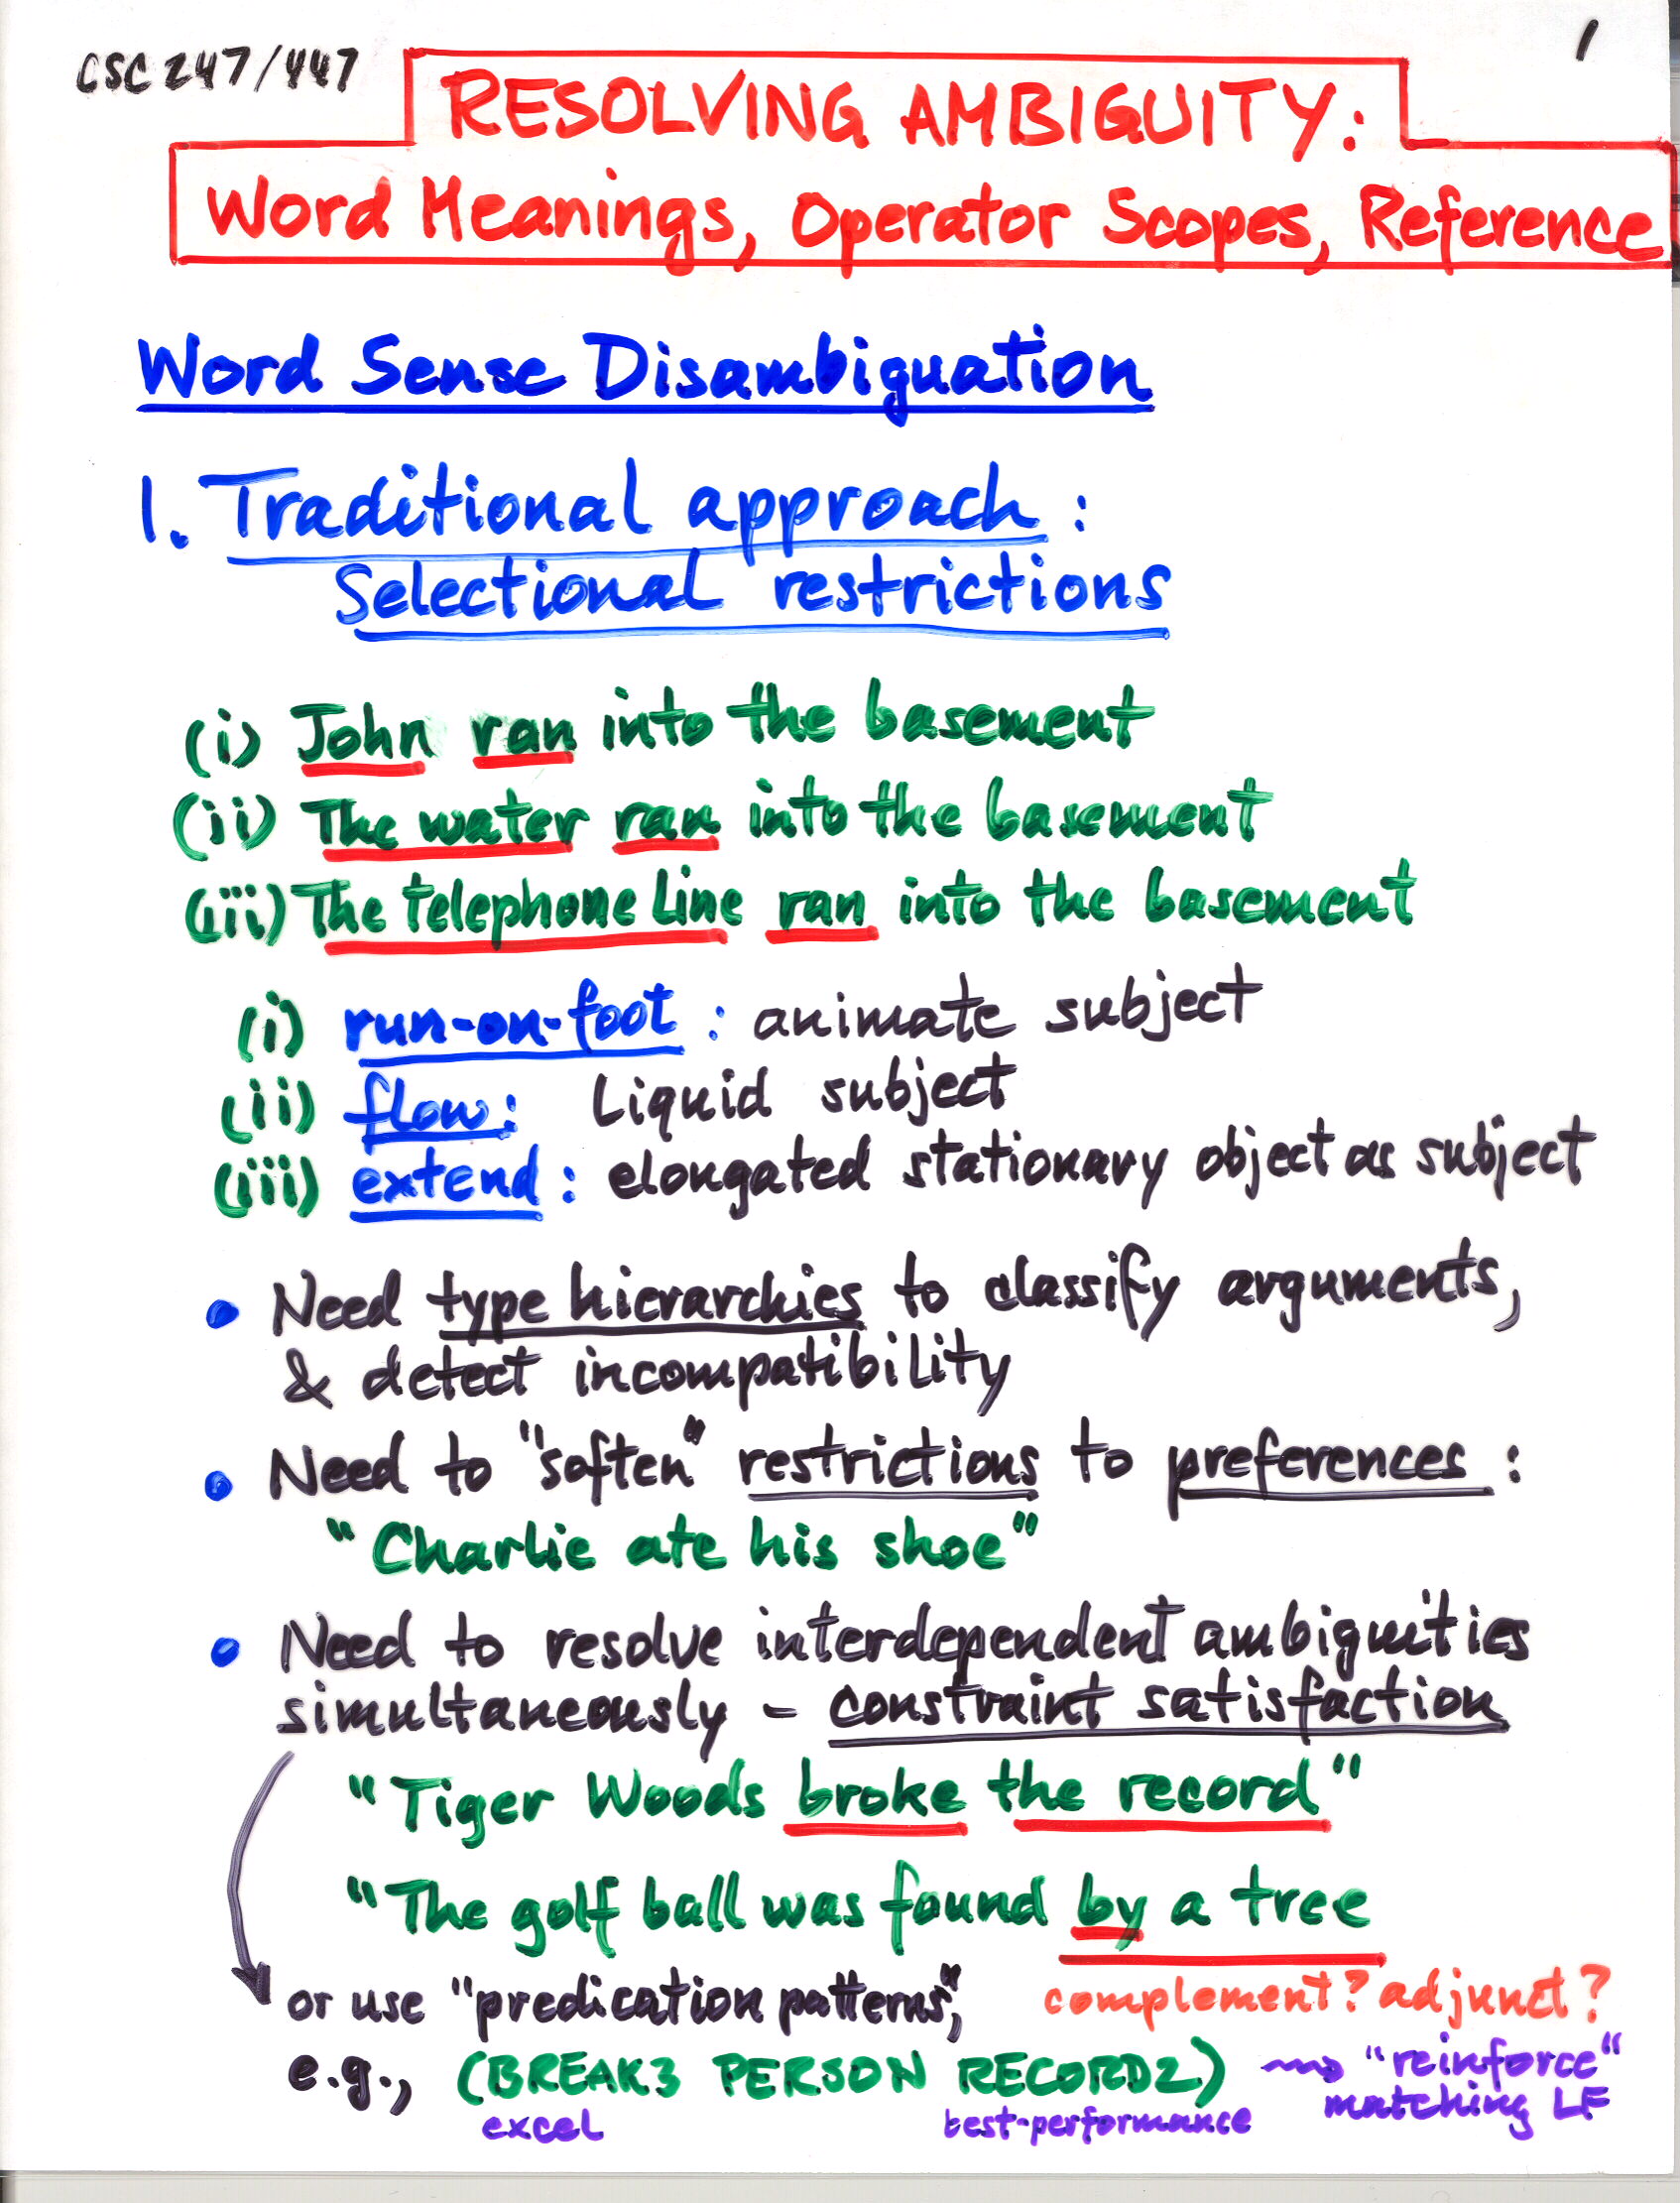 CSC 247/447
1
RESOLVING AMBIGUITY:
Word Meanings, Operator Scopes, Reference
Word Sense Disambiguation
1. Traditional approach:
Selectional restrictions
(i) John ran into the basement
(ii) The water ran into the basement
(iii) The telephone line ran into the basement
(i) run-on-foot: animate subject
(ii) flow: Liquid subject
(iii) extend: elongated stationary object as subject
• Need type hierarchies to classify arguments,
& detect incompatibility
• Need to "soften" restrictions to preferences:
"Charlie ate his shoe"
• Need to resolve interdependent ambiguities
simultaneously - constraint satisfaction
"Tiger Woods broke the record"
"The golf ball was found by a tree
complement? adjunct?
or use "predication patterns",
e.g., (BREAK3 PERSON RECORD2) ⟿ "reinforce"
matching LF
excel best-performance